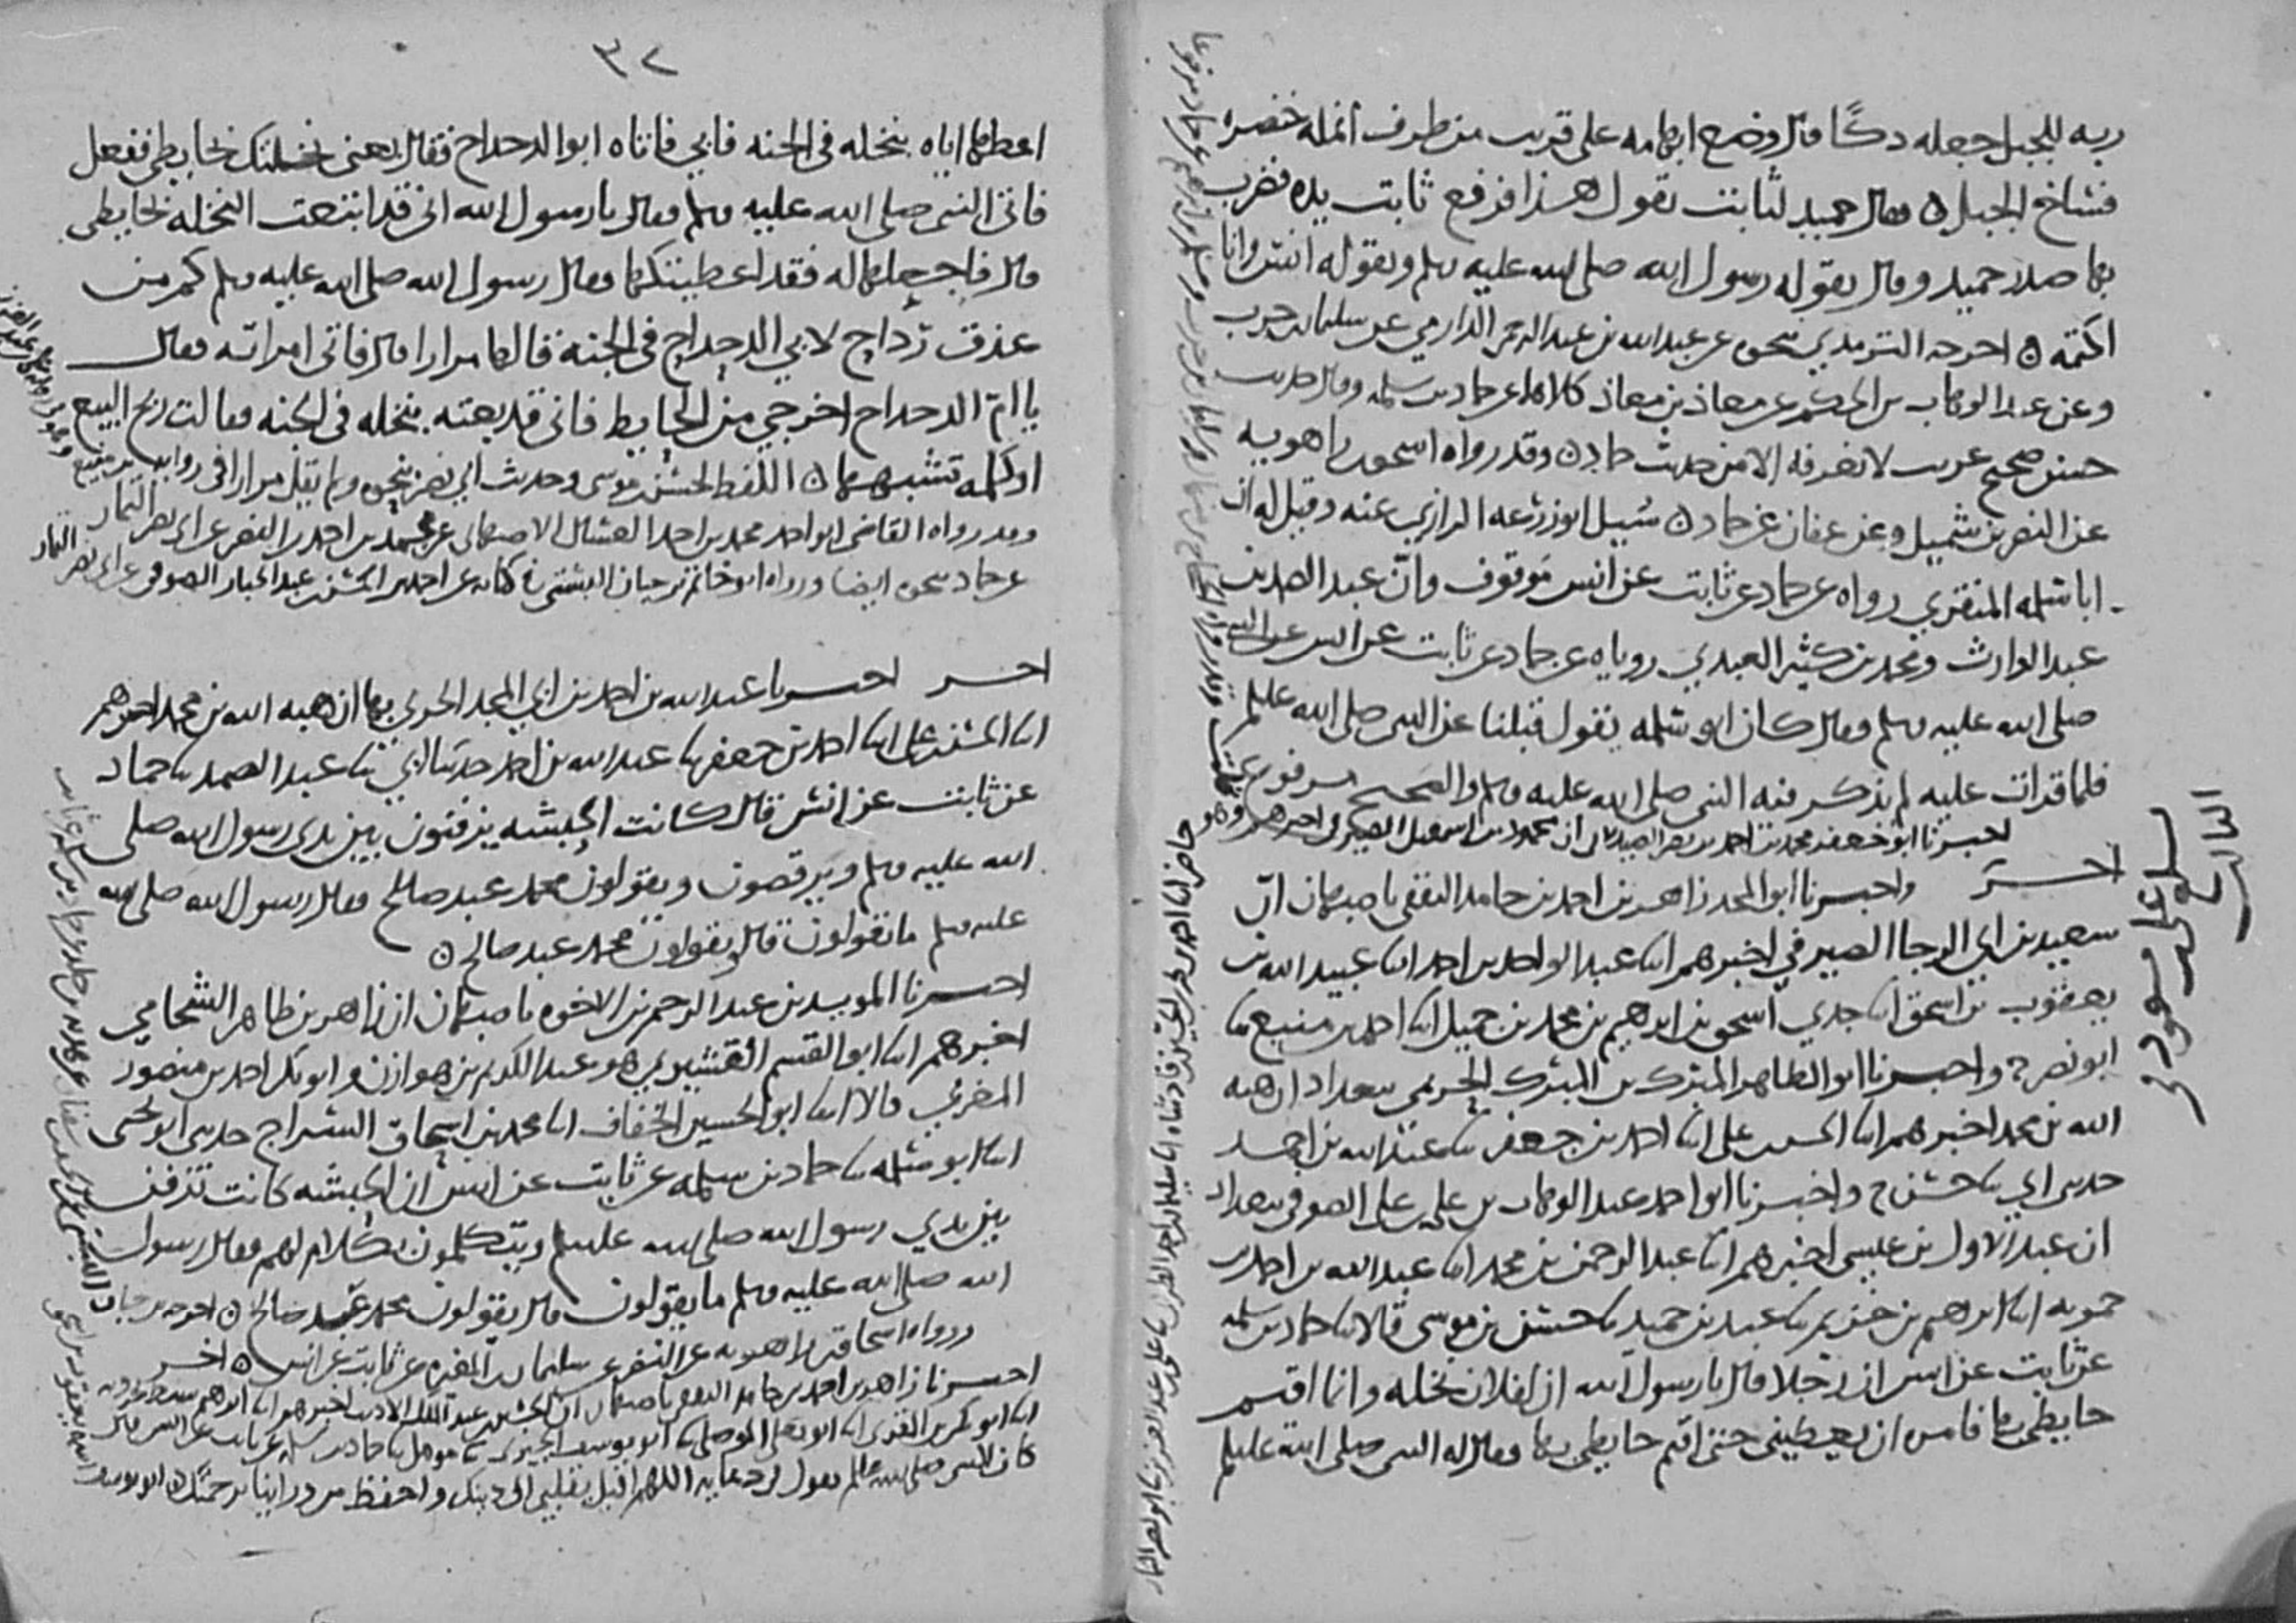 ربه للجبل جعله دكًا قال وضع ابهامه على قريب من طرف انمله خنصره
فساخ الجبل ه فقال حميد لثابت تقول هذا فرفع ثابت يده فضرب
بها صدر حميد وقال يقوله رسول الله صلى الله عليه وسلم ويقوله انس وانا
اكتمه ه اخرجه الترمدي بنحوه عن عبد الله بن عبد الرحمن الدارمي عن سليمان بن حرب
وعن عبد الوهاب بن الحكم عن معاذ بن معاذ كلاهما عن حماد بن سلمه وقال حديث
حسن صحيح غريب لا نعرفه الا من حديث حماد ه وقد رواه اسحق بن راهويه
عن النضر بن شميل وعن عفان عن حماد ه سُيل ابو زرعه الرازي عنه وقيل له ان
ابا سلمه المنقري رواه عن حماد عن ثابت عن انس موقوف وان عبد الصمد بن
عبد الوارث ومحمد بن كثير العبدي روياه عن حماد عن ثابت عن انس عن النبي
صلى الله عليه وسلم فقال كان ابو سلمه يقول قبلنا عن النبي صلى الله عليه وسلم
فلما قرات عليه لم يذكر فيه النبي صلى الله عليه وسلم والصحيح مرفوع
اخبرنا ابو جعفر محمد بن احمد بن نصر الصيدلاني ان محمود بن اسمعيل الصيرفي اخبرهم وهو
اخر واخبرنا ابو المجد زاهر بن احمد بن حامد الثقفي باصبهان ان
سعيد بن ابي الرجا الصيرفي اخبرهم ابنا عبد الواحد بن احمد ابنا عبيد الله بن
يعقوب بن اسحق ابنا جدي اسحق بن ابرهيم بن محمد بن جميل ابنا احمد بن منيع ثنا
ابو نصر ح واخبرنا ابو الطاهر المبرك بن المبرك الحريمي ببغداد ان هبه
الله بن محمد اخبرهم ابنا الحسن بن علي ابنا احمد بن جعفر ثنا عبد الله بن احمد
حدثني ابي ثنا حسن ح واخبرنا ابو احمد عبد الوهاب بن علي بن علي الصوفي ببغداد
ان عبد الاول بن عيسى اخبرهم ابنا عبد الرحمن بن محمد ابنا عبد الله بن احمد بن
حمويه ابنا ابرهيم بن خزيم ثنا عبد بن حميد ثنا حسن بن موسى قالا ثنا حماد بن سلمه
عن ثابت عن انس ان رجلا قال يا رسول الله ان لفلان نخله وانا اقيم
حايطي بها فامره ان يعطيني حتى اقيم حايطي بها فقال له النبي صلى الله عليه وسلم
٣٢
اعطها اياه بنخله في الجنه فابى فاتاه ابو الدحداح فقال بعني نخلتك بحايطي ففعل
فاتى النبي صلى الله عليه وسلم فقال يا رسول الله اني قد ابتعت النخله بحايطي
قال فاجعلها له فقد اعطيتكها فقال رسول الله صلى الله عليه وسلم كم من
عذق رداح لابي الدحداح في الجنة قالها مرارا قال فاتى امراته فقال
يا ام الدحداح اخرجي من الحايط فاني قد بعته بنخله في الجنه فقالت ربح البيع
او كلمه تشبهها ه اللفظ لحسن بن موسى وحديث ابي نصر بنحوه ولم يقل مرارا في روايه بن منيع
وقد رواه القاضي ابو احمد محمد بن احمد العسال الاصبهاني عن محمد بن احمد بن النضر عن ابي نصر التمار
عن حماد بنحوه ايضا ورواه ابو حاتم بن حبان البستي في كتابه عن احمد بن الحسن بن عبد الجبار الصوفي عن ابي نصر التمار
اخر اخبرنا عبد الله بن احمد بن ابي المجد الحربي بها ان هبه الله بن محمد اخبرهم
ابنا الحسن بن علي ابنا احمد بن جعفر ثنا عبد الله بن احمد حدثنا ابي ثنا عبد الصمد ثنا حماد
عن ثابت عن انس قال كانت الحبشه يزفنون بين يدي رسول الله صلى
الله عليه وسلم ويرقصون ويقولون محمد عبد صالح فقال رسول الله صلى الله
عليه وسلم ما تقولون قال يقولون محمد عبد صالح ه
اخبرنا المويد بن عبد الرحيم بن الاخوه باصبهان ان زاهر بن طاهر الشحامي
اخبرهم ابنا ابو القسم القشيري هو عبد الكريم بن هوازن وابو بكر احمد بن منصور
المغربي قالا ابنا ابو الحسين الخفاف ابنا محمد بن اسحاق السراج حدثني ابو يحيى
ابنا ابو سلمه ثنا حماد بن سلمه عن ثابت عن انس ان الحبشه كانت تزفن
بين يدي رسول الله صلى الله عليه وسلم ويتكلمون بكلام لهم فقال رسول
الله صلى الله عليه وسلم ما يقولون قال يقولون محمد عبد صالح ه اخرجه بن حبان
ورواه اسحاق بن راهويه عن النضر عن سليمان بن المغيره عن ثابت عن انس ه اخر
اخبرنا زاهر بن احمد بن حامد الثقفي باصبهان ان الحسين بن عبد الملك الاديب اخبرهم ابنا ابرهيم
ابنا ابو بكر بن المقرئ ابنا ابو يعلى الموصلي ثنا ابو يوسف الجيزي ثنا مومل ثنا حماد بن سلمه عن ثابت عن انس قال
كان النبي صلى الله عليه وسلم يقول في دعايه اللهم اقبل بقلبي الى دينك واحفظ من وراينا برحمتك ه